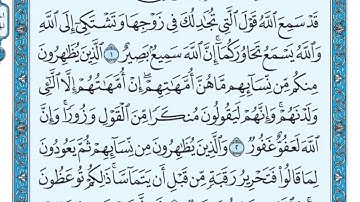 قَدْ سَمِعَ ٱللَّهُ قَوْلَ ٱلَّتِى تُجَٰدِلُكَ فِى زَوْجِهَا وَتَشْتَكِىٓ إِلَى ٱللَّهِ
وَٱللَّهُ يَسْمَعُ تَحَاوُرَكُمَآ إِنَّ ٱللَّهَ سَمِيعٌۢ بَصِيرٌ ١ ٱلَّذِينَ يُظَٰهِرُونَ
مِنكُم مِّن نِّسَآئِهِم مَّا هُنَّ أُمَّهَٰتِهِمْ إِنْ أُمَّهَٰتُهُمْ إِلَّا ٱلَّٰٓـِٔى
وَلَدْنَهُمْ وَإِنَّهُمْ لَيَقُولُونَ مُنكَرًا مِّنَ ٱلْقَوْلِ وَزُورًا وَإِنَّ
ٱللَّهَ لَعَفُوٌّ غَفُورٌ ٢ وَٱلَّذِينَ يُظَٰهِرُونَ مِن نِّسَآئِهِمْ ثُمَّ يَعُودُونَ
لِمَا قَالُوا۟ فَتَحْرِيرُ رَقَبَةٍ مِّن قَبْلِ أَن يَتَمَآسَّا ذَٰلِكُمْ تُوعَظُونَ